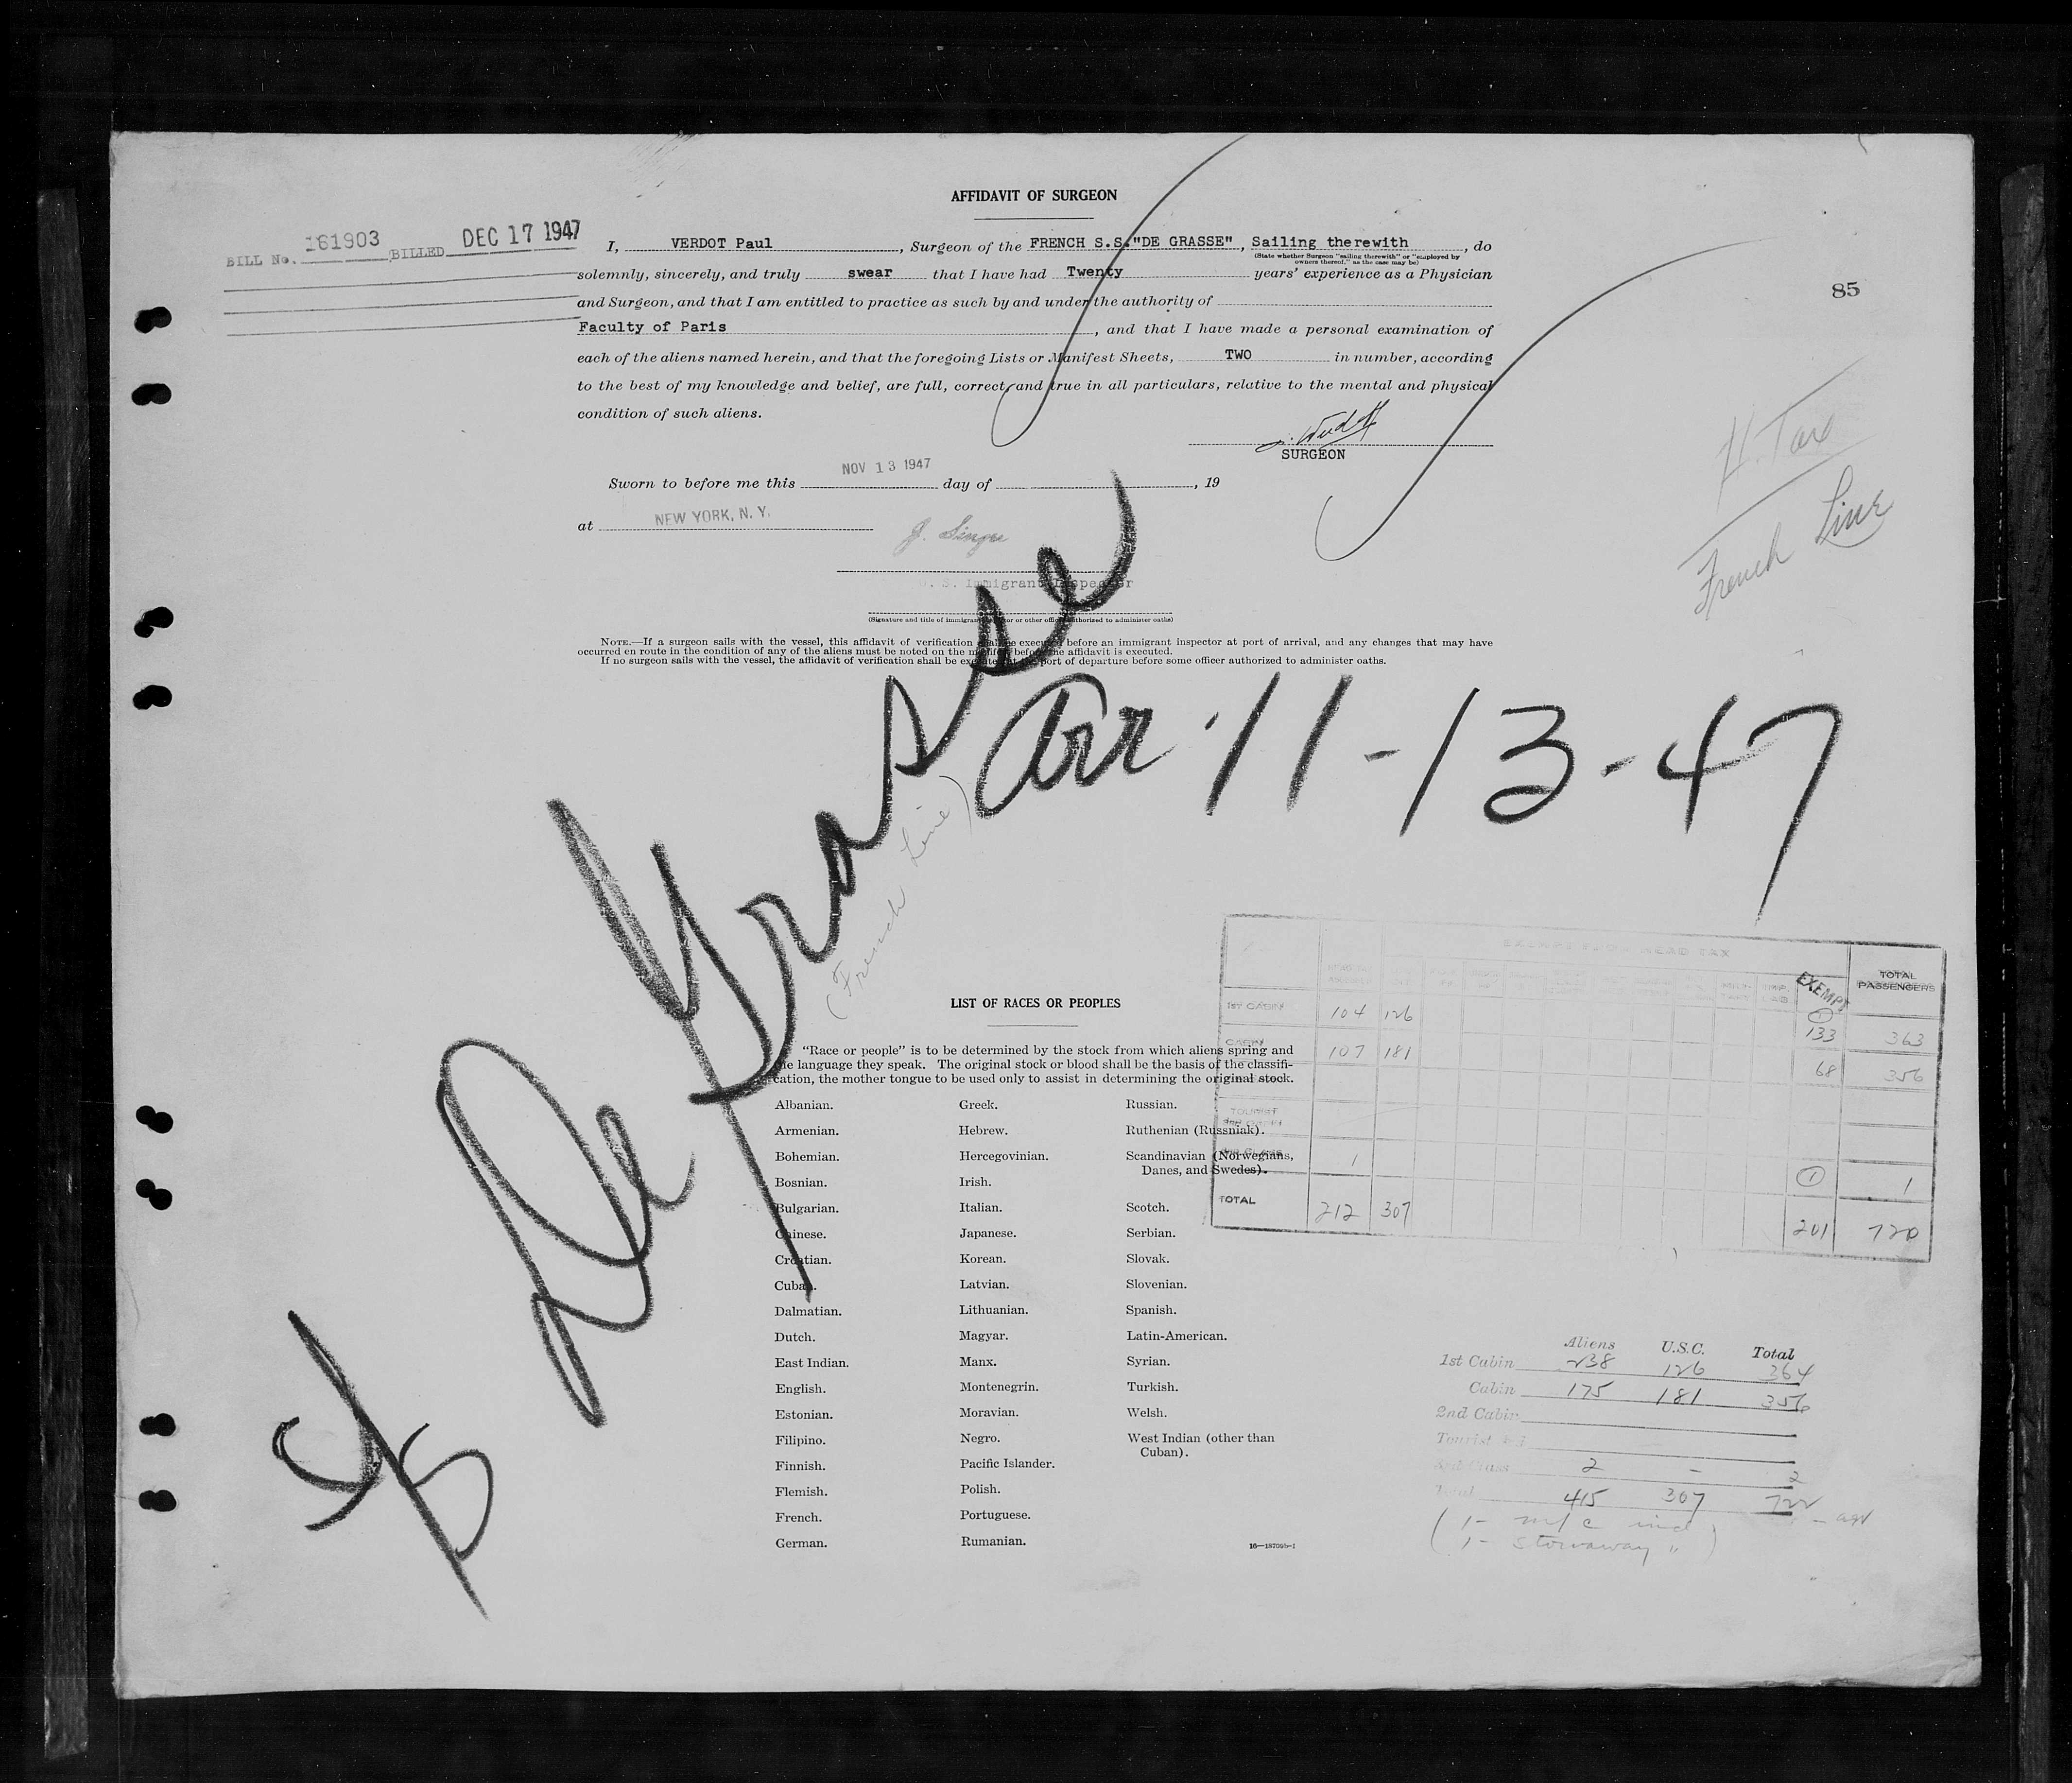 AFFIDAVIT OF SURGEON
BILL No. 161903 BILLED DEC 17 1947
I, VERDOT Paul, Surgeon of the FRENCH S.S. "DE GRASSE", Sailing therewith, do
(State whether Surgeon "sailing therewith" or "employed by
owners thereof," as the case may be)
solemnly, sincerely, and truly swear that I have had Twenty years' experience as a Physician
and Surgeon, and that I am entitled to practice as such by and under the authority of
85
Faculty of Paris, and that I have made a personal examination of
each of the aliens named herein, and that the foregoing Lists or Manifest Sheets, TWO in number, according
to the best of my knowledge and belief, are full, correct, and true in all particulars, relative to the mental and physical
condition of such aliens.
SURGEON
H. Tax
French Line
NOV 13 1947
Sworn to before me this day of , 19
at NEW YORK, N. Y.
J. Singer
U. S. Immigrant Inspector
(Signature and title of immigrant inspector or other officer authorized to administer oaths)
NOTE.—If a surgeon sails with the vessel, this affidavit of verification shall be executed before an immigrant inspector at port of arrival, and any changes that may have
occurred en route in the condition of any of the aliens must be noted on the manifest before the affidavit is executed.
If no surgeon sails with the vessel, the affidavit of verification shall be executed at the port of departure before some officer authorized to administer oaths.
SS De Grasse arr 11-13-47
(French Line)
EXEMPT FROM HEAD TAX
EXEMPT TOTAL PASSENGERS
1ST CABIN 104 126 1 133 363
CABIN 107 181 68 356
TOURIST
1 1 1
TOTAL 212 307 201 720
LIST OF RACES OR PEOPLES
"Race or people" is to be determined by the stock from which aliens spring and
the language they speak. The original stock or blood shall be the basis of the classifi-
cation, the mother tongue to be used only to assist in determining the original stock.
Albanian.
Armenian.
Bohemian.
Bosnian.
Bulgarian.
Chinese.
Croatian.
Cuban.
Dalmatian.
Dutch.
East Indian.
English.
Estonian.
Filipino.
Finnish.
Flemish.
French.
German.
Greek.
Hebrew.
Hercegovinian.
Irish.
Italian.
Japanese.
Korean.
Latvian.
Lithuanian.
Magyar.
Manx.
Montenegrin.
Moravian.
Negro.
Pacific Islander.
Polish.
Portuguese.
Rumanian.
Russian.
Ruthenian (Russniak).
Scandinavian (Norwegians,
Danes, and Swedes).
Scotch.
Serbian.
Slovak.
Slovenian.
Spanish.
Latin-American.
Syrian.
Turkish.
Welsh.
West Indian (other than
Cuban).
Aliens U.S.C. Total
1st Cabin 238 126 364
Cabin 175 181 356
2nd Cabin
Tourist
3rd Class 2 - 2
Total 415 307 722
(1- m/c incl)
(1- stowaway ")